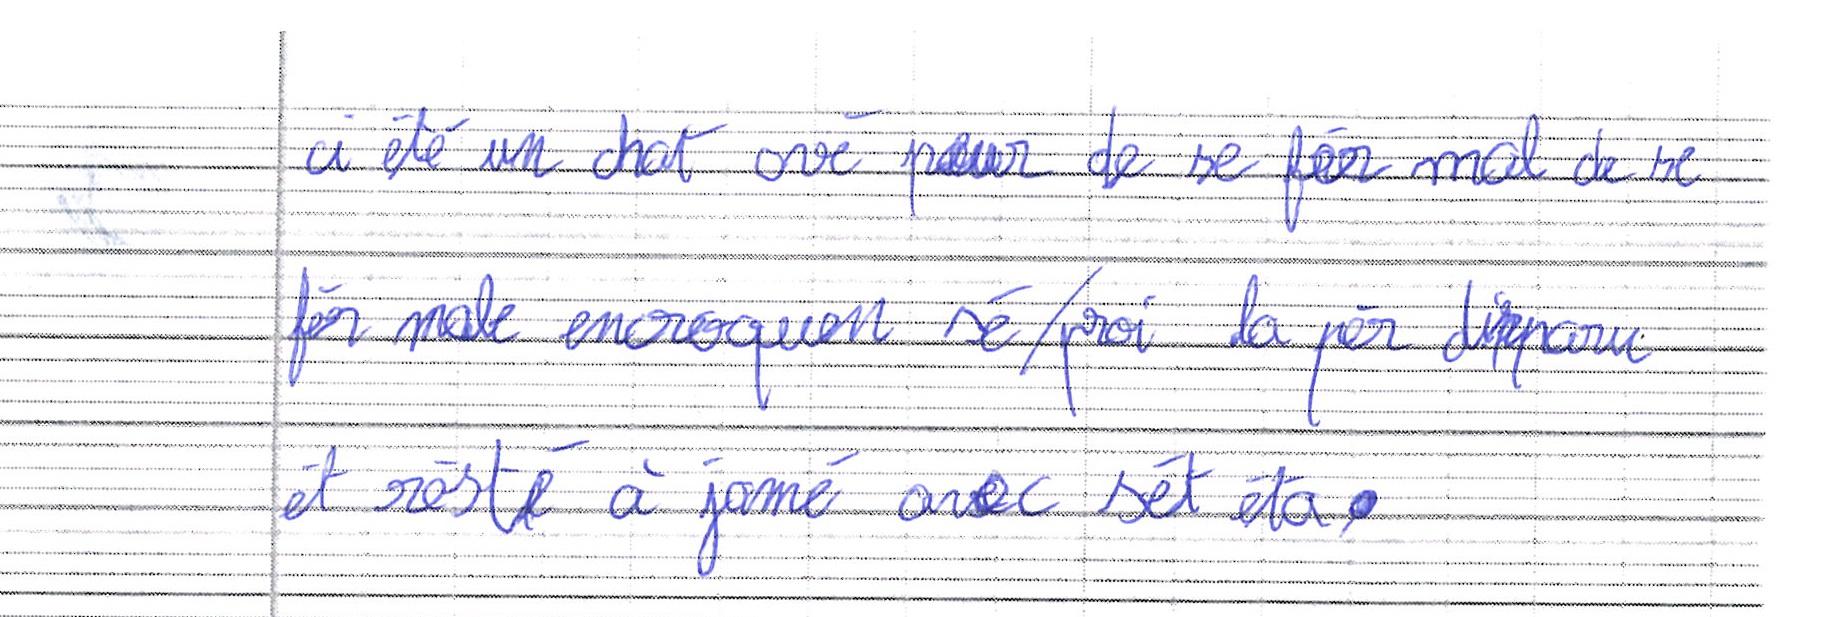 ci été un chat avé peur de se fèr mal de se
fèr male encroquen sé/proi la pèr disparu
et rèsté à jamé avec sét éta.